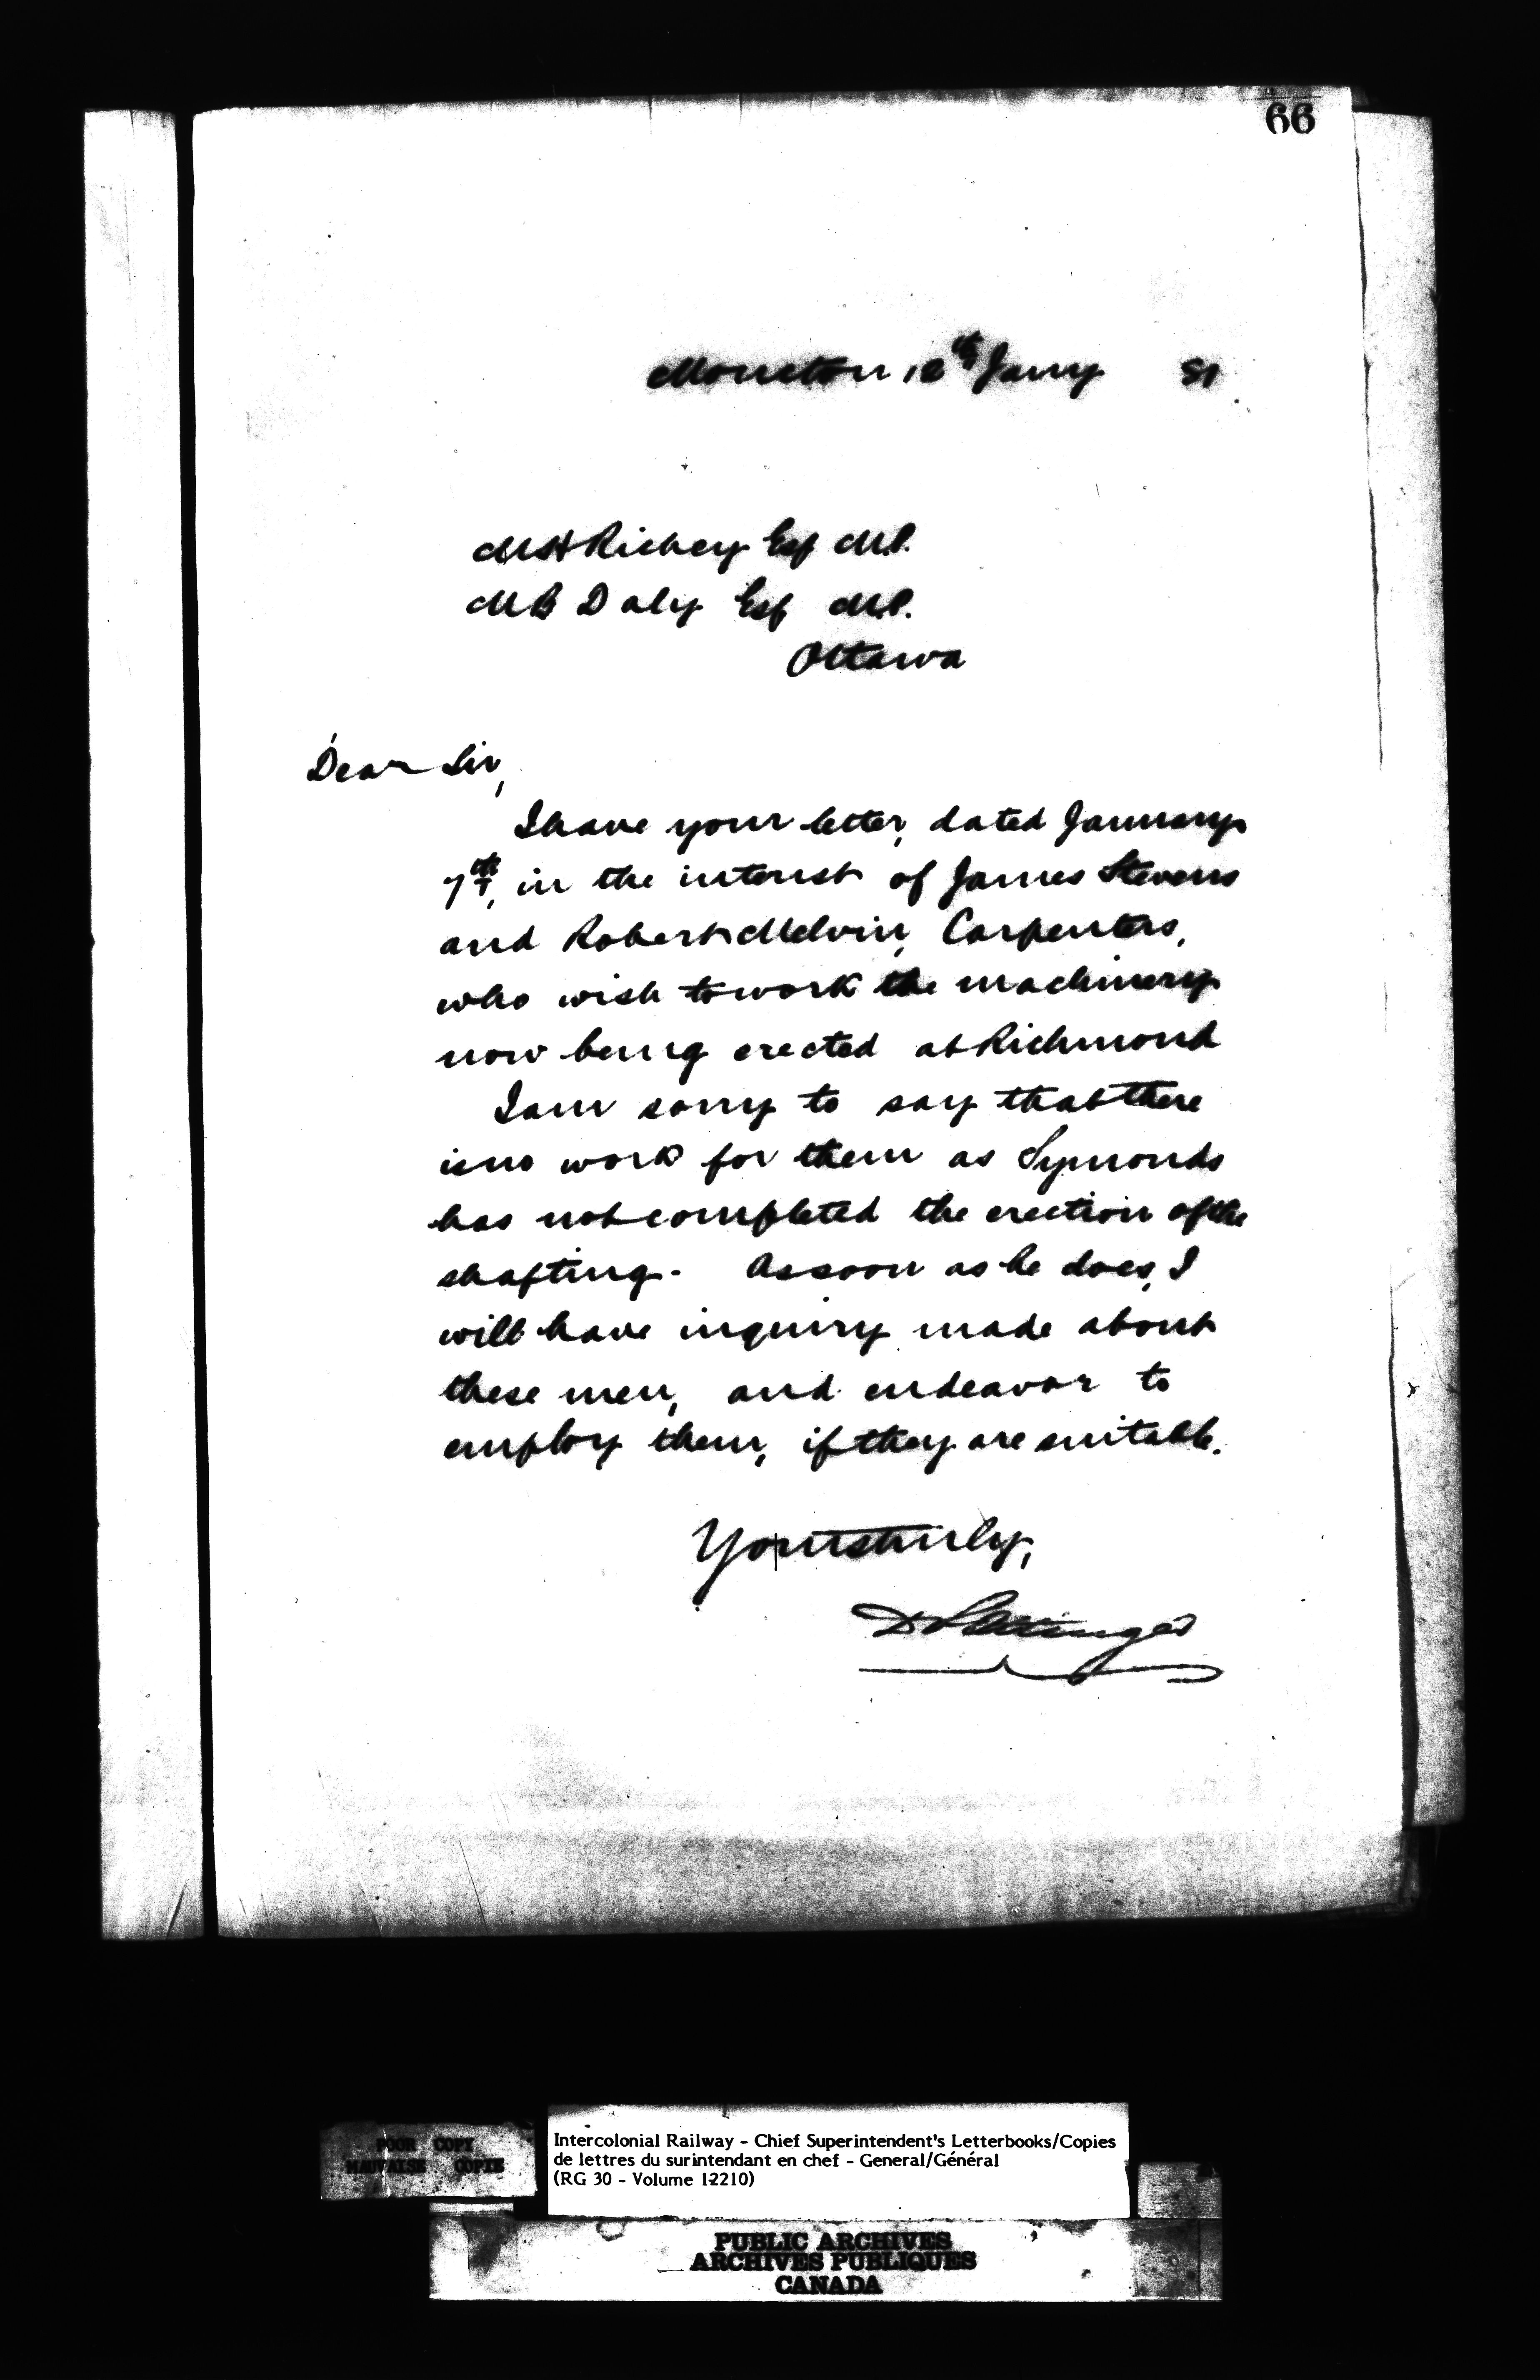 66
Moncton 12th Jany 81
M H Richey Esq M.P.
M B Daly Esq M.P.
Ottawa
Dear Sir,
I have your letter, dated January
7th, in the interest of James Stevens
and Robert Melvin, Carpenters,
who wish to work the machinery
now being erected at Richmond
I am sorry to say that there
is no work for them as Symonds
has not completed the erection of the
shafting. As soon as he does, I
will have inquiry made about
these men, and endeavor to
employ them, if they are suitable.
Yours truly,
D Pottinger
POOR COPY
MAUVAISE COPIE
Intercolonial Railway - Chief Superintendent's Letterbooks/Copies
de lettres du surintendant en chef - General/Général
(RG 30 - Volume 12210)
PUBLIC ARCHIVES
ARCHIVES PUBLIQUES
CANADA